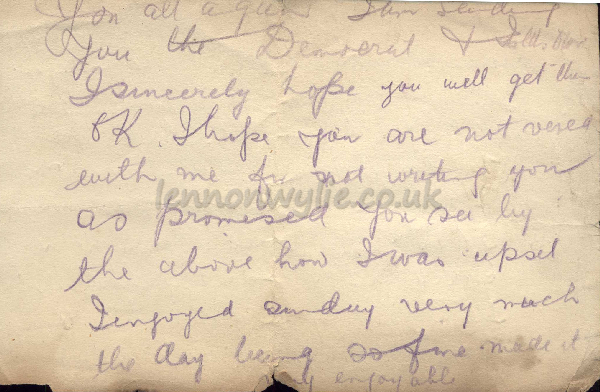 You all again I am sending
You the Democrat & I
I sincerely hope you will get them
OK. I hope you are not vexed
with me for not writing you
as promised You see by
the above how I was upset
I engoyed sunday very much
the day being so fine made it
enjoyable
lennonwylie.co.uk